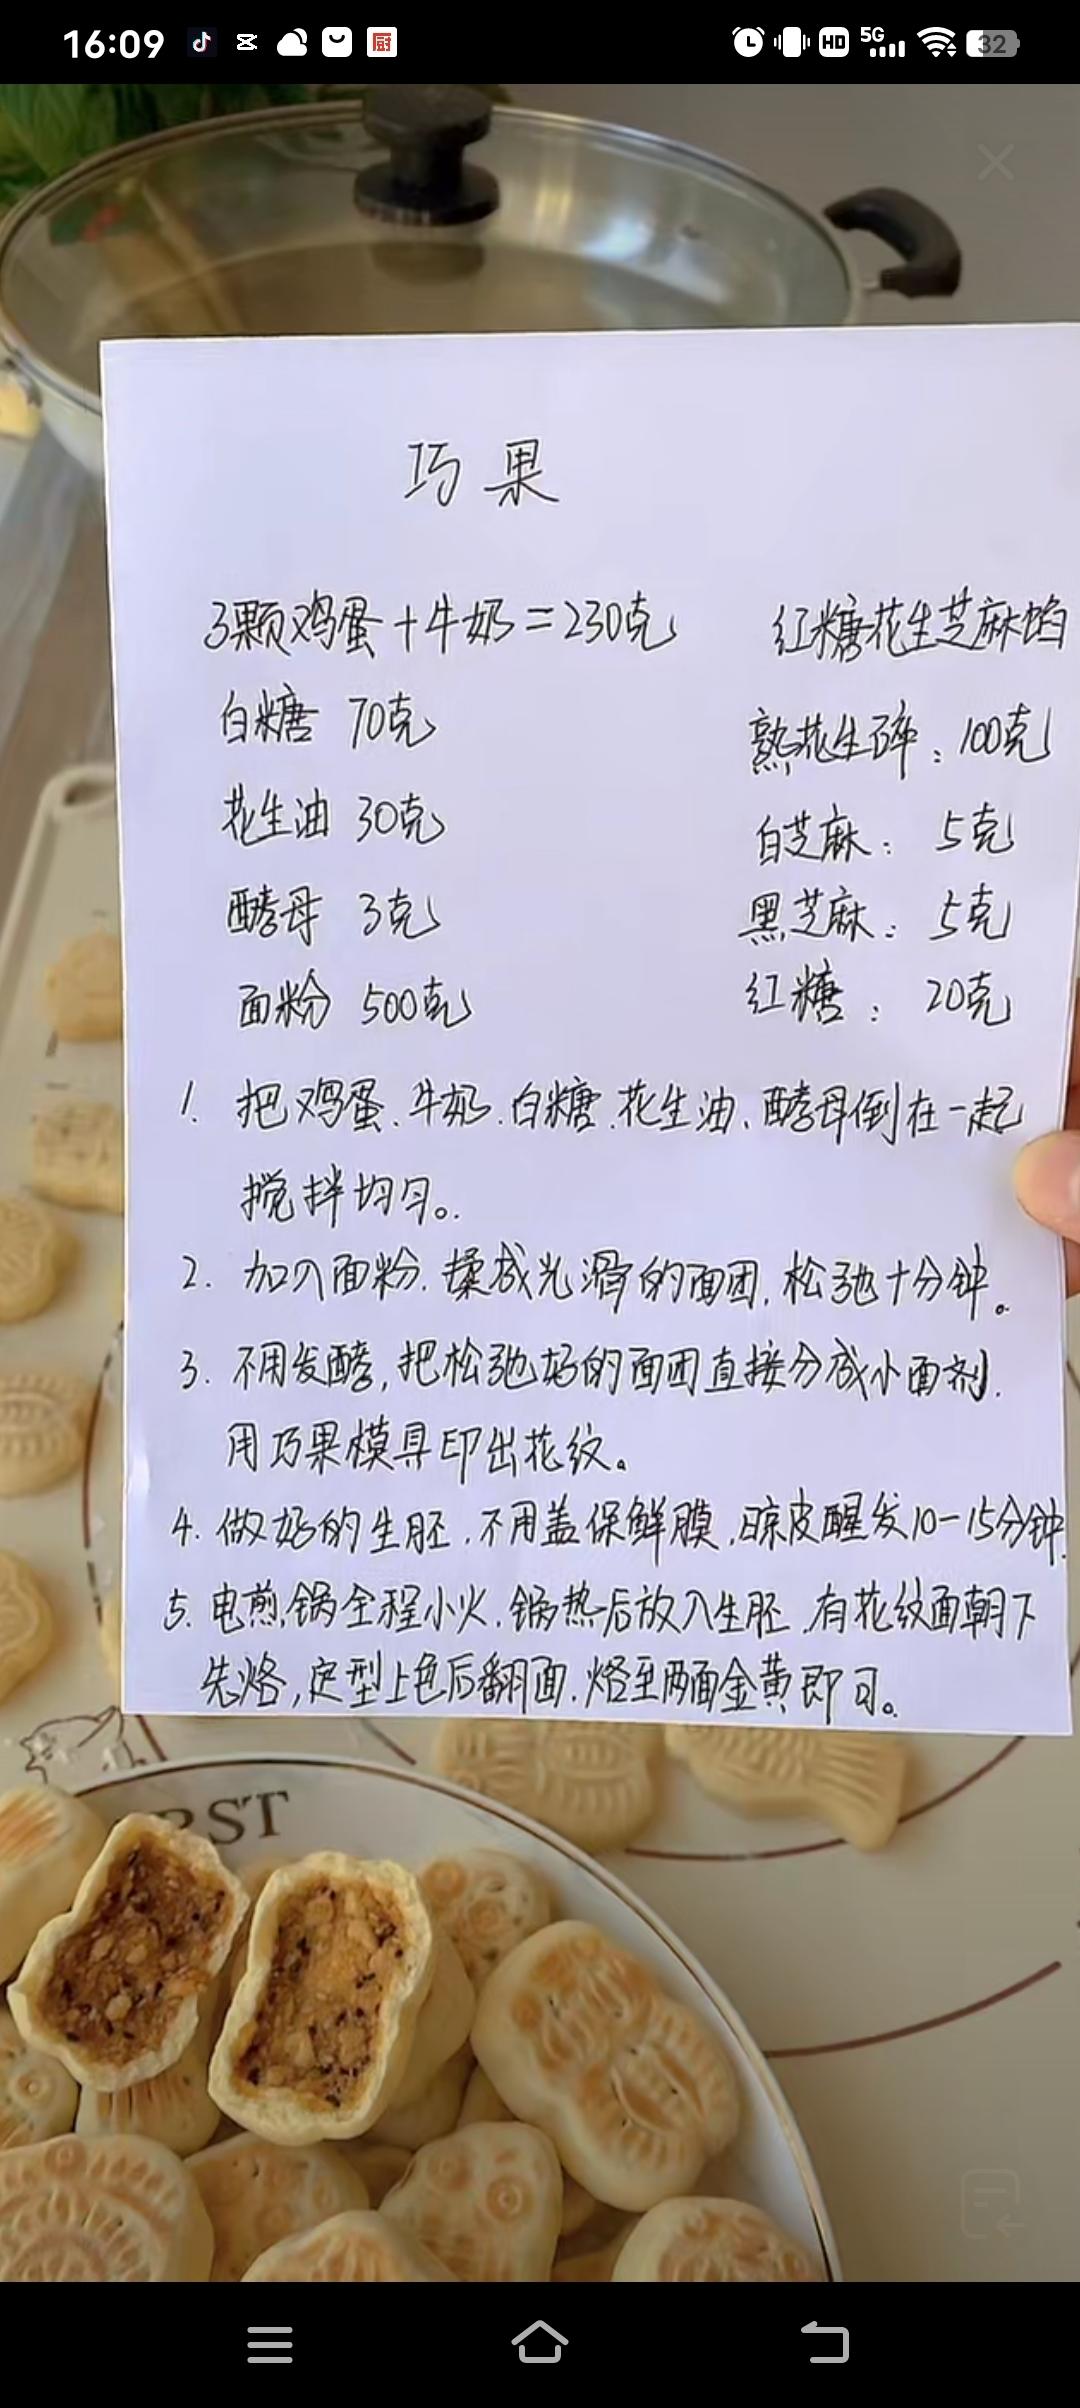 16:09
HD
5G
32
厨
巧果
3颗鸡蛋+牛奶=230克
白糖 70克
花生油 30克
酵母 3克
面粉 500克
红糖花生芝麻馅
熟花生碎：100克
白芝麻：5克
黑芝麻：5克
红糖：20克
1. 把鸡蛋、牛奶、白糖、花生油、酵母倒在一起
搅拌均匀。
2. 加入面粉,揉成光滑的面团,松弛十分钟。
3. 不用发酵,把松弛好的面团直接分成小面剂,
用巧果模具印出花纹。
4. 做好的生胚,不用盖保鲜膜,晾皮醒发10-15分钟.
5. 电煎锅全程小火,锅热后放入生胚,有花纹面朝下
先烙,定型上色后翻面,烙至两面金黄即可。
RST